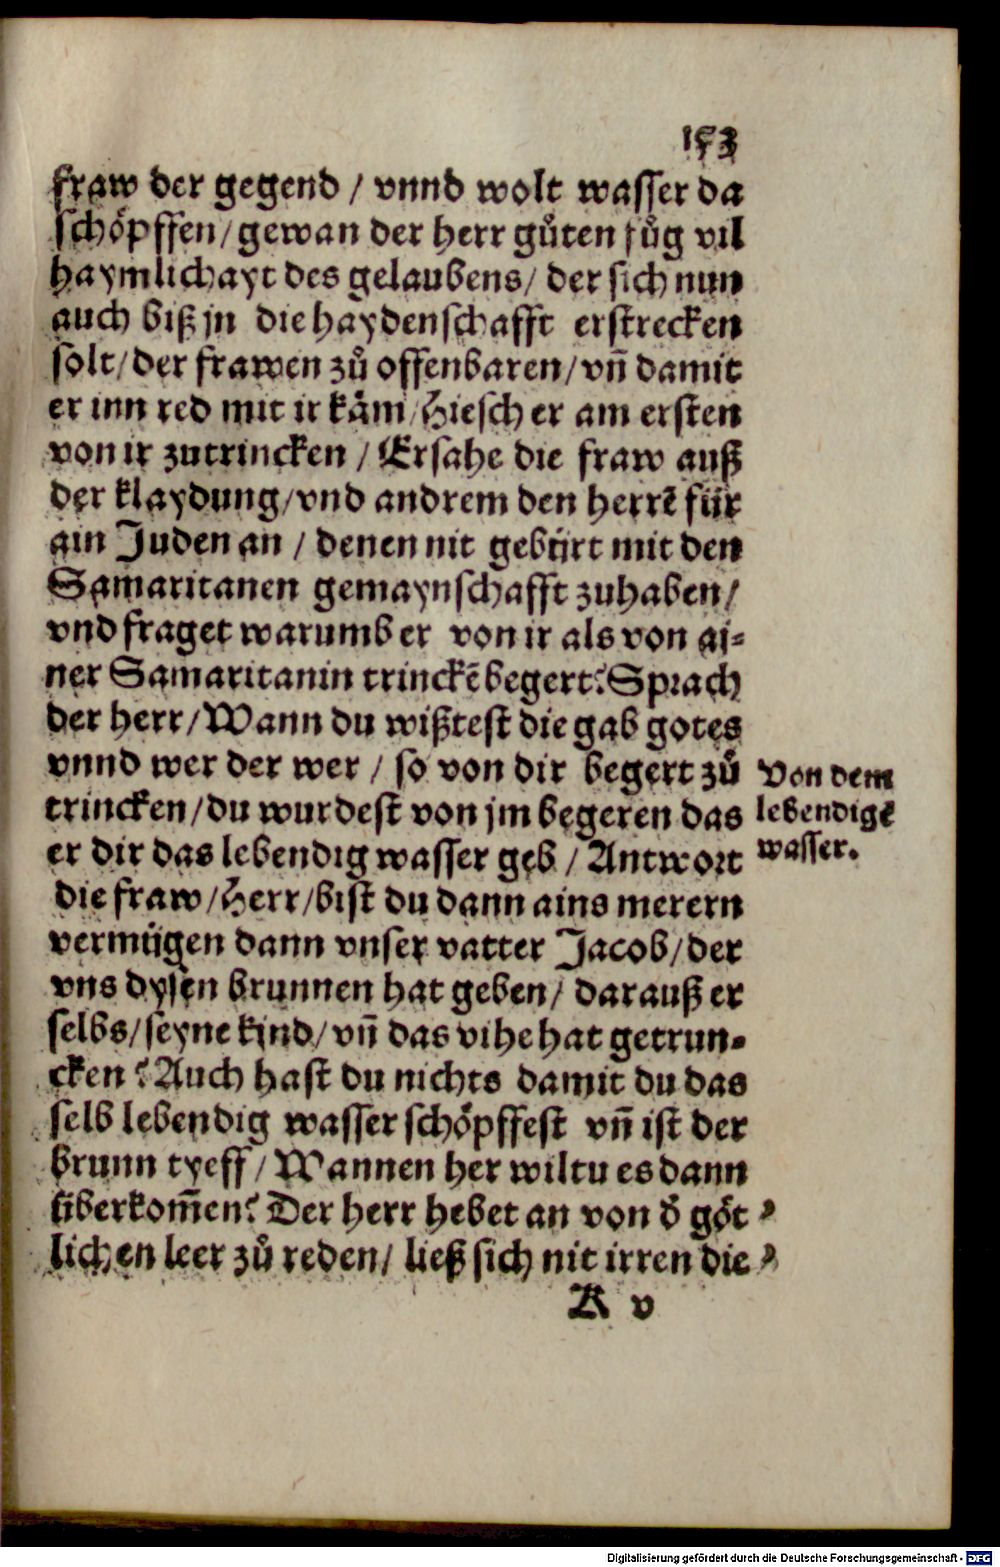 153
fraw der gegend / vnnd wolt wasser da
schoͤpffen / gewan der herr guͦten fuͦg vil
haymlichayt des gelaubens / der sich nun
auch biß jn die haydenschafft erstrecken
solt / der frawen zuͦ offenbaren / vñ damit
er inn red mit ir kaͤm / Hiesch er am ersten
von ir zutrincken / Ersahe die fraw auß
der klaydung / vnd andrem den herrẽ für
ain Juden an / denen nit gebürt mit den
Samaritanen gemaynschafft zuhaben /
vnd fraget warumb er von ir als von ai⸗
ner Samaritanin trinckẽ begert? Sprach
der herr / Wann du wißtest die gab gotes
vnnd wer der wer / so von dir begert zuͦ
trincken / du wurdest von jm begeren das
er dir das lebendig wasser geb / Antwort
die fraw / Herr / bist du dann ains merern
vermügen dann vnser vatter Jacob / der
vns dysen brunnen hat geben / darauß er
selbs / seyne kind / vñ das vihe hat getrun⸗
cken? Auch hast du nichts damit du das
selb lebendig wasser schoͤpffest vñ ist der
brunn tyeff / Wannen her wiltu es dann
überkom̃en? Der herr hebet an von d̕ goͤt⸗
lichen leer zuͦ reden / ließ sich nit irren die⸗
Von dem
lebendigẽ
wasser.
K v
Digitalisierung gefördert durch die Deutsche Forschungsgemeinschaft - DFG